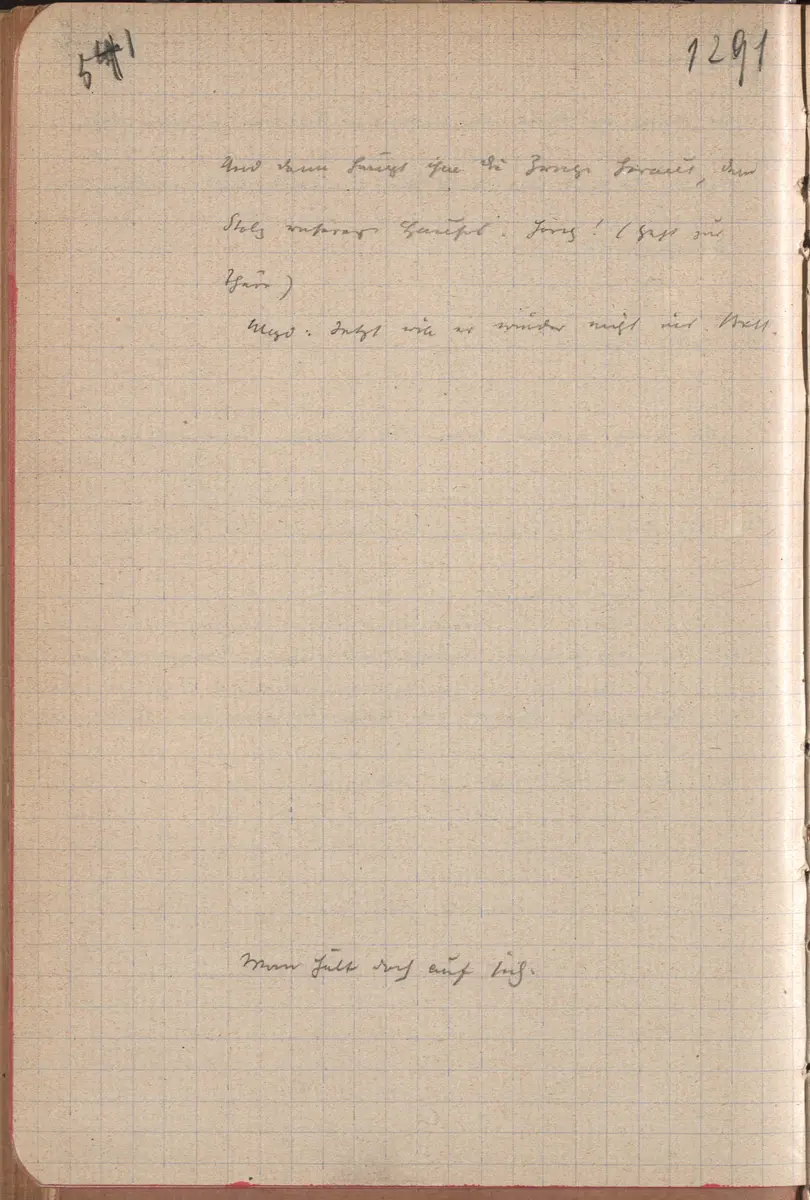 541
1291
Und dann hängt ihm die Zunge heraus, dem
Stolz unseres Hauses. Horch! (geht zur
Thüre)
Magd: Jetzt will er wieder nicht ins Bett.
Man hält doch auf sich.